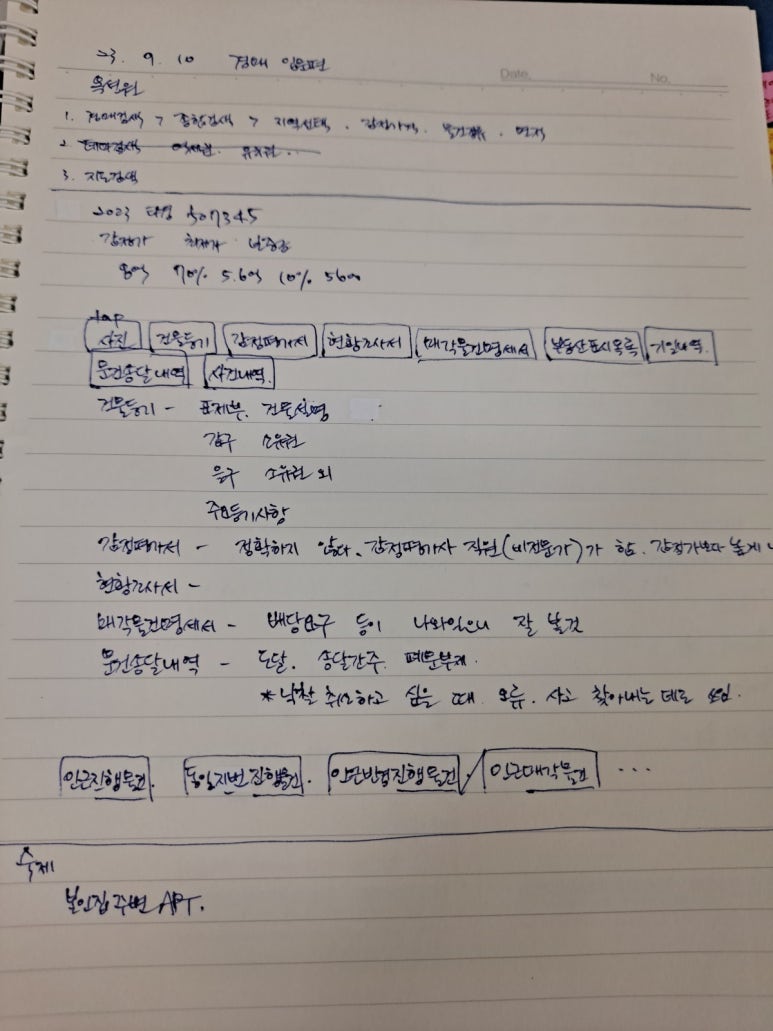 23. 9. 10 경매 입문편
Date. No.
옥션원
1. 경매검색 > 종합검색 > 지역선택. 감정가격. 물건종류. 면적
2. 테마검색 역세권. 유치권...
3. 지도검색
2023 타경 507345
감정가 최저가 보증금
8억 70% 5.6억 10% 5600
tap
사진 건물등기 감정평가서 현황조사서 매각물건명세서 부동산표시목록 기일내역.
문건송달내역 사건내역.
건물등기 - 표제부. 건물설명
갑구 소유권
을구 소유권 외
주요등기사항
감정평가서 - 정확하지 않다. 감정평가사 직원(비전문가)가 함. 감정가보다 높게
현황조사서 -
매각물건명세서 - 배당요구 등이 나와있으니 잘 볼것
문건송달내역 - 도달. 송달간주. 폐문부재.
*낙찰 취소하고 싶을 때 오류. 사고 찾아내는 데로 쓰임.
인근진행물건. 동일지번진행물건. 인근반경진행물건. 인근매각물건 ...
숙제
본인집 주변 APT.